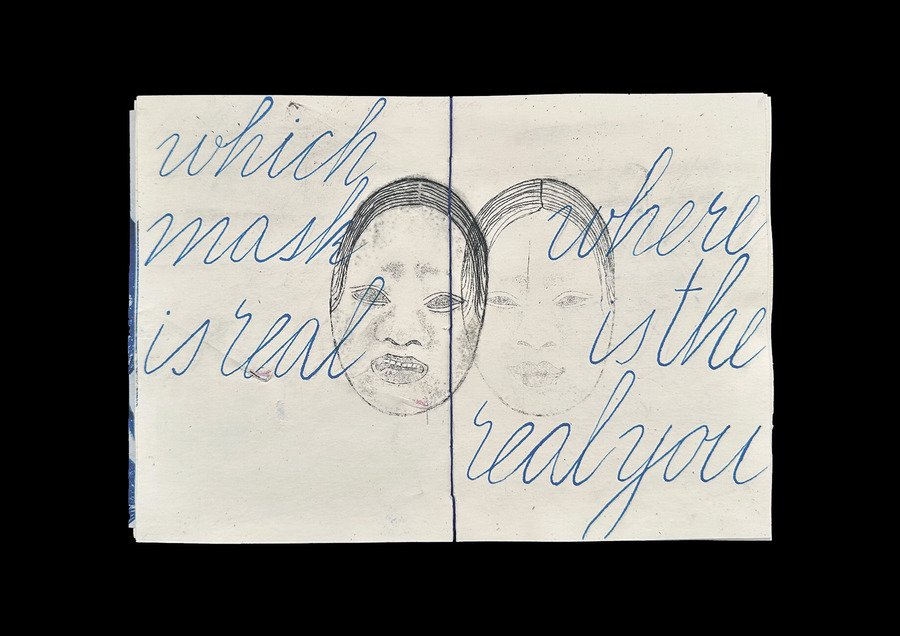 which
mask
is real
where
is the
real you